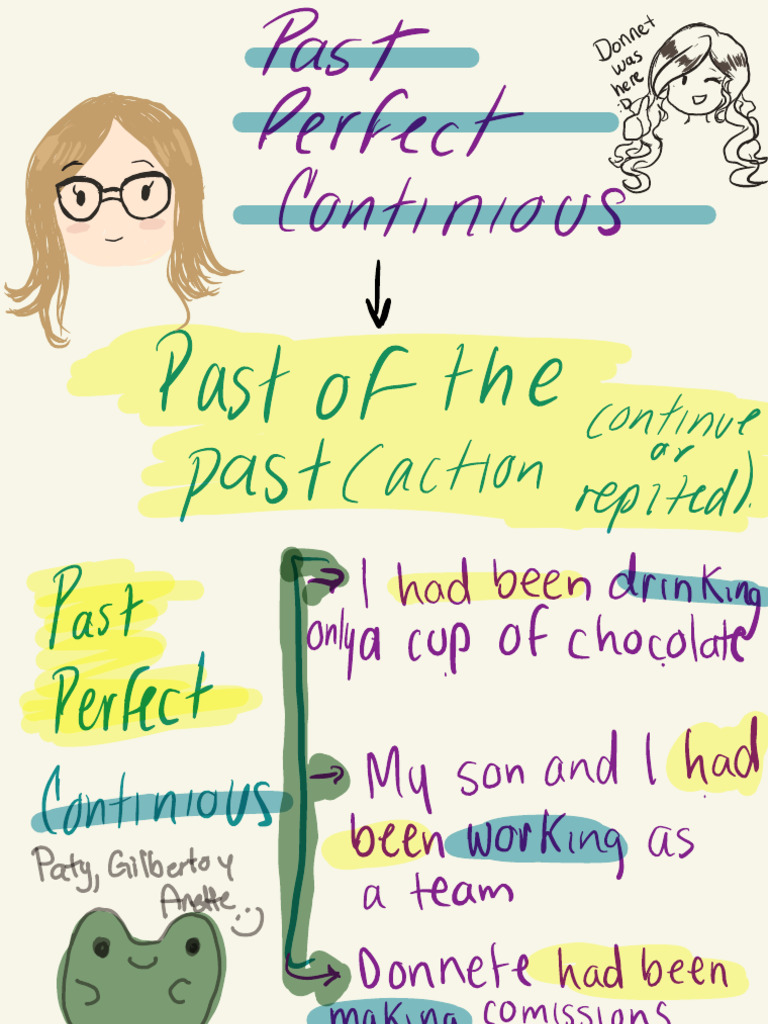 Past
Perfect
Continious
Donnet
was
here
:D
Past of the
past (action
continue
or
repited).
Past
Perfect
Continious
Paty, Gilberto y
Anette :)
I had been drinking
only a cup of chocolate
My son and I had
been working as
a team
Donnete had been
making comissions